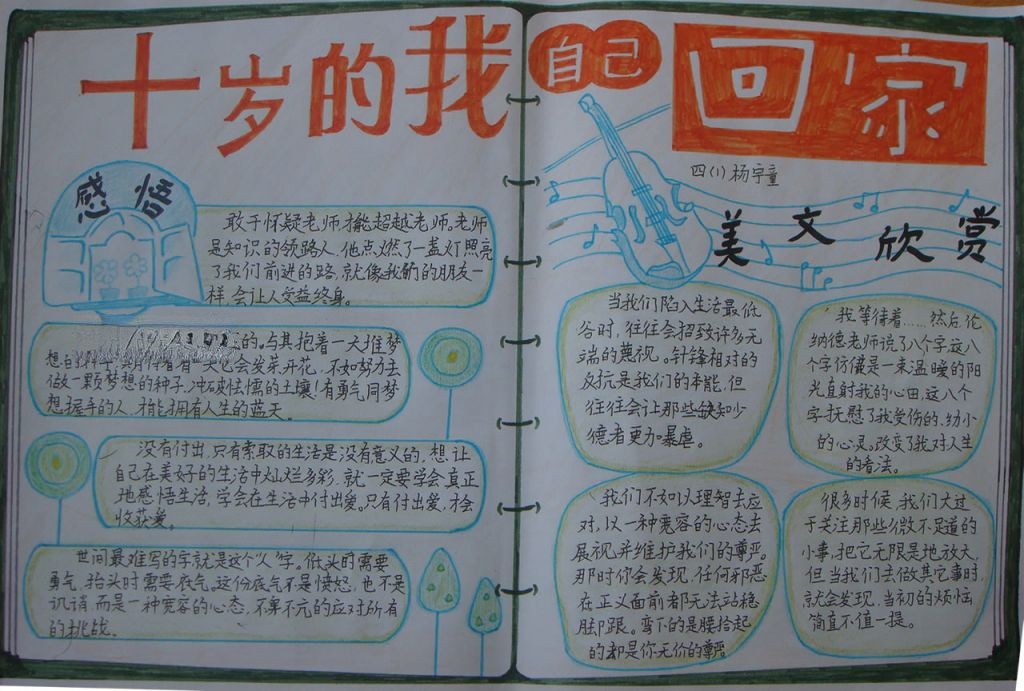 十岁的我
自己
回家
四(1) 杨宇童
感悟
敢于怀疑老师,才能超越老师,老师
是知识的领路人,他点燃了一盏灯照亮
了我们前进的路,就像我们的朋友一
样,会让人受益终身。
的。与其抱着一大堆梦
想的种子,期待着有一天它会发芽开花,不如努力去
做一颗梦想的种子,冲破怯懦的土壤!有勇气同梦
想握手的人,才能拥有人生的蓝天。
没有付出,只有索取的生活是没有意义的,想让
自己在美好的生活中灿烂多彩,就一定要学会真正
地感悟生活,学会在生活中付出爱。只有付出爱,才会
收获爱。
世间最难写的字就是这个"人"字。低头时需要
勇气,抬头时需要底气。这份底气不是愤怒,也不是
讥诮,而是一种宽容的心态,不卑不亢的应对所有
的挑战。
美文欣赏
当我们陷入生活最低
谷时,往往会招致许多无
端的蔑视。针锋相对的
反抗是我们的本能,但
往往会让那些缺知少
德者更加暴虐。
我等待着……然后,伦
纳德老师说了八个字,这八
个字仿佛是一束温暖的阳
光直射我的心田,这八个
字抚慰了我受伤的、幼小
的心灵。改变了我对人生
的看法。
我们不如以理智去应
对,以一种宽容的心态去
展视,并维护我们的尊严。
那时你会发现,任何邪恶
在正义面前都无法站稳
脚跟。弯下的是腰,拾起
的却是你无价的尊严
很多时候,我们太过
于关注那些微不足道的
小事,把它无限是地放大,
但当我们去做其它事时,
就会发现,当初的烦恼
简直不值一提。